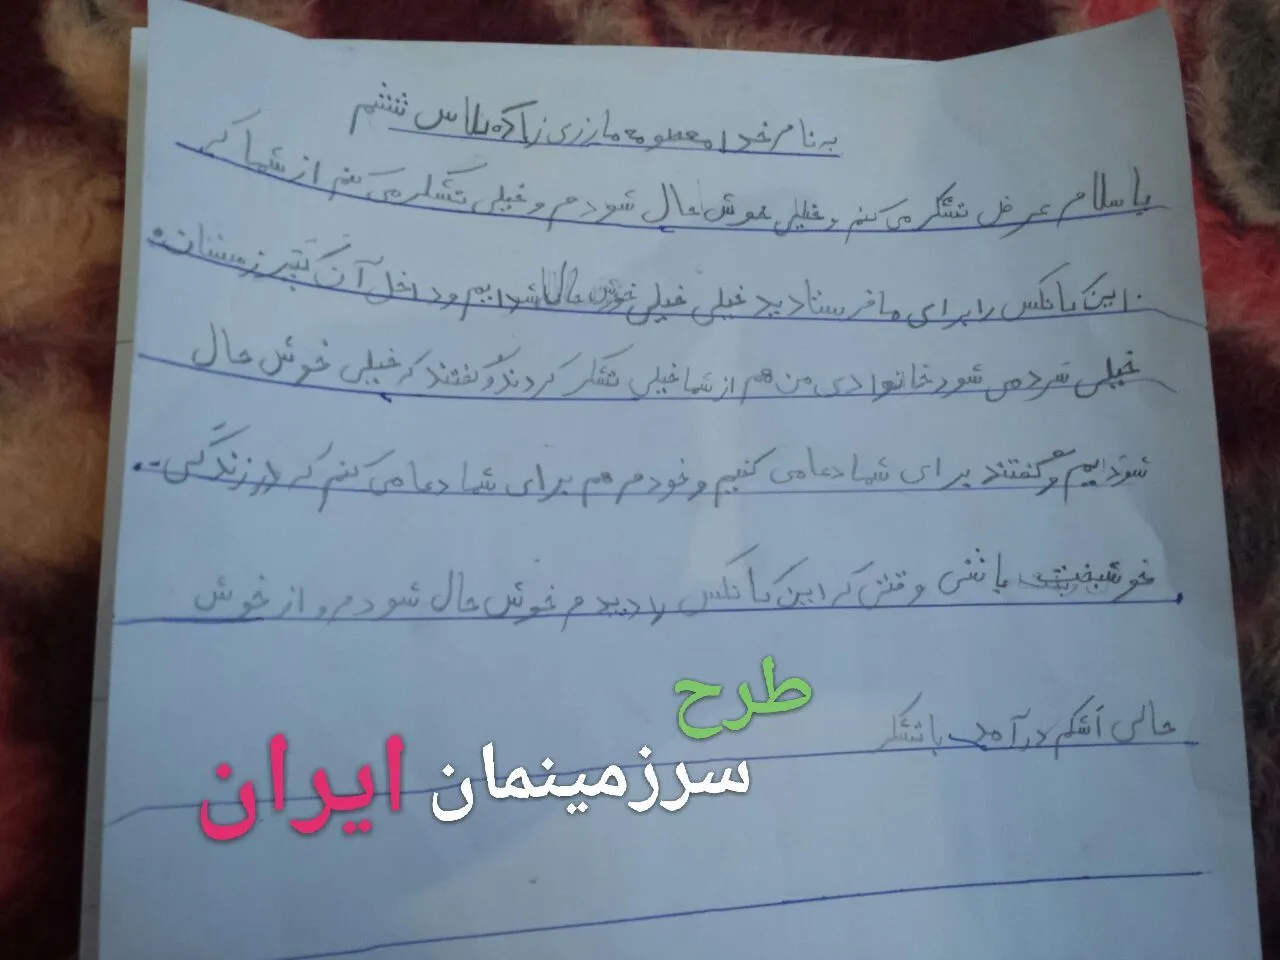 به نام خدا معصومه مارزی زاده کلاس ششم
با سلام عرض تشکر می کنم و خیلی خوش حال شودم و خیلی تشکر می کنم از شما که
این کانکس را برای ما فرستادید خیلی خیلی خوش حال شودایم و داخل آن زمستان
خیلی سرد می شود خانوادی من هم از شما خیلی تشکر کردند و گفتند که خیلی خوش حال
شودایم و گفتند برای شما دعا می کنیم و خودم هم برای شما دعا می کنم که در زندگی
خوشبخت باشی وقتی که این کانکس را دیدم خوش حال شودم و از خوش
حالی اشکم در آمد با تشکر
طرح
سرزمینمان ایران